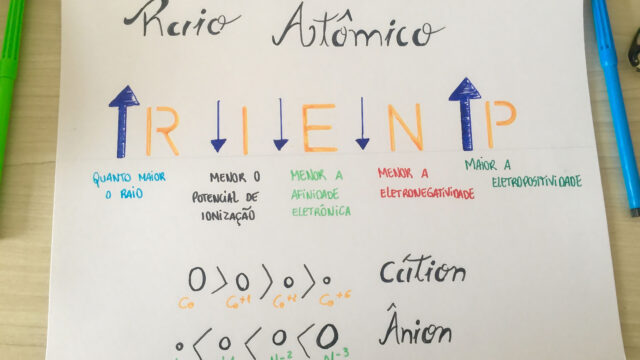 Raio Atômico
R I E N P
QUANTO MAIOR
O RAIO
MENOR O
POTENCIAL DE
IONIZAÇÃO
MENOR A
AFINIDADE
ELETRÔNICA
MENOR A
ELETRONEGATIVIDADE
MAIOR A
ELETROPOSITIVIDADE
O > O > O > O Cátion
Co Co+1 Co+2 Co+5
O < O < O < O Ânion
N-2 N-3